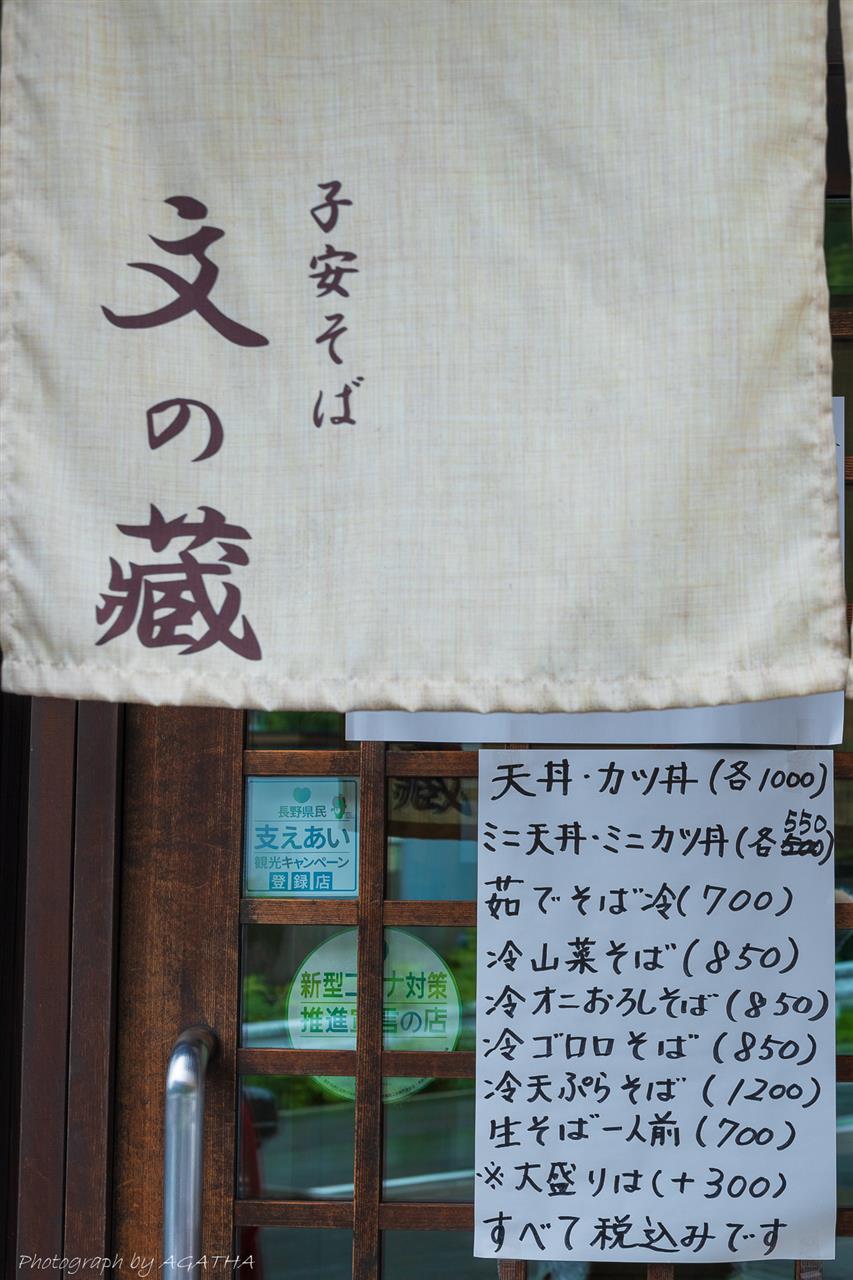 子安そば
文の蔵
長野県民
支えあい
観光キャンペーン
登録店
新型コロナ対策
推進宣言の店
天丼・カツ丼(各1000)
ミニ天丼・ミニカツ丼(各550)
茹でそば冷(700)
冷山菜そば(850)
冷オニおろしそば(850)
冷ゴロロそば(850)
冷天ぷらそば(1200)
生そば一人前(700)
※大盛りは(+300)
すべて税込みです
Photograph by AGATHA